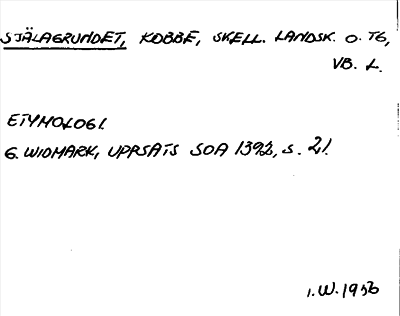 SJÄLAGRUNDET, KOBBE, SKELL. LANDSK. O. TG,
VB. L.
ETYMOLOGI.
G. WIDMARK, UPPSATS SOA 1392, S. 21.
I. W. 1956